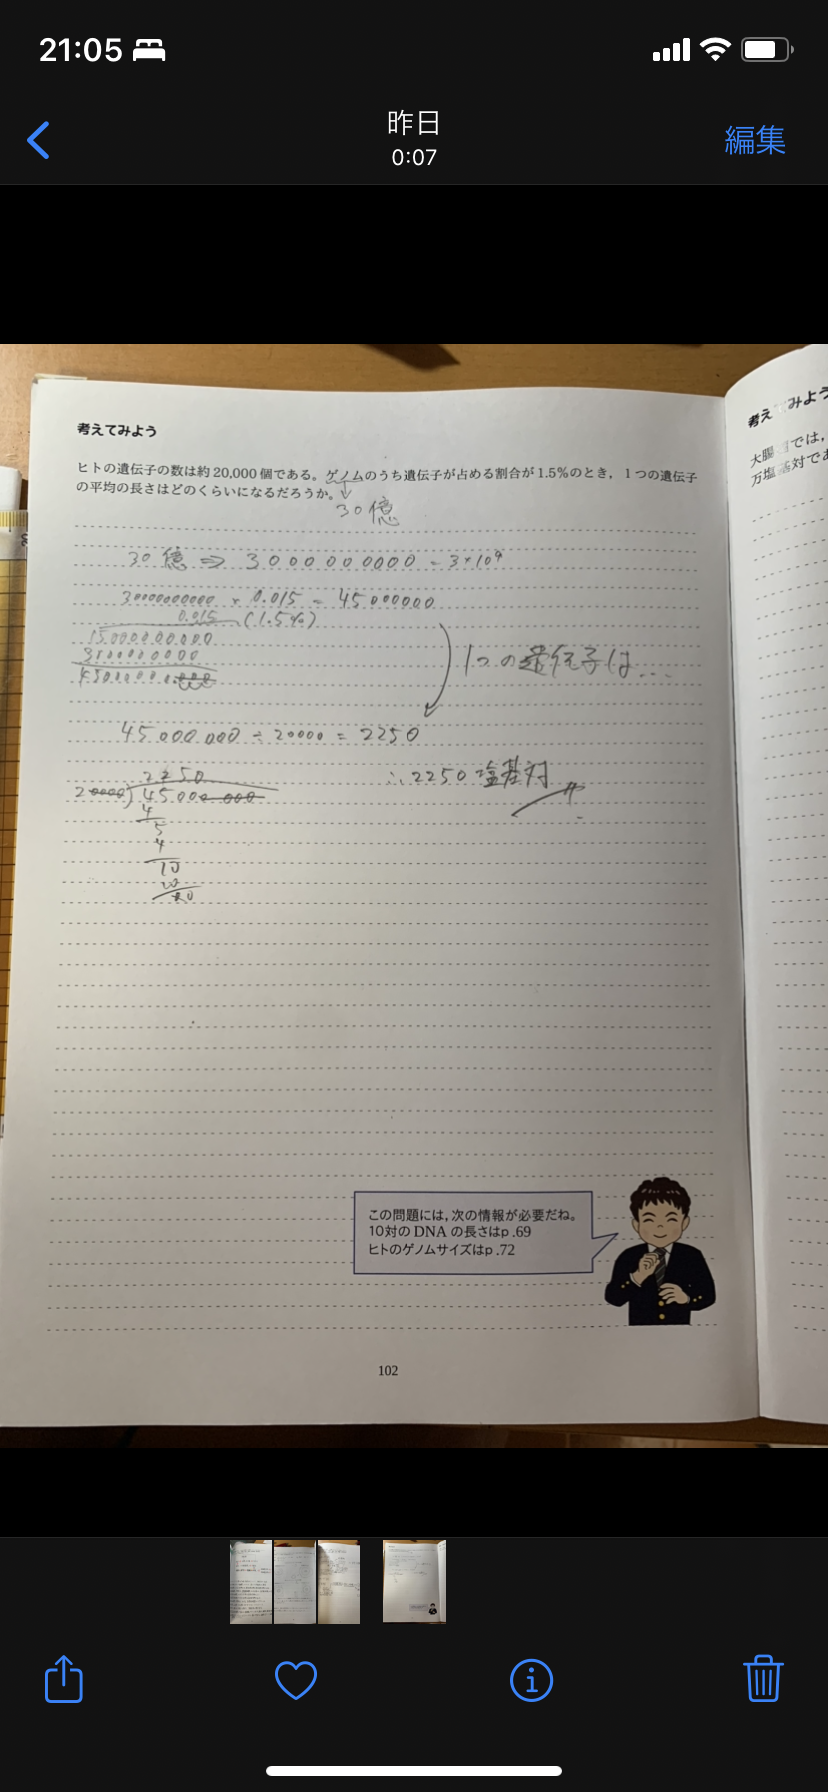 21:05
昨日
0:07
編集
考えてみよう
ヒトの遺伝子の数は約20,000個である。ゲノムのうち遺伝子が占める割合が1.5%のとき，1つの遺伝子
の平均の長さはどのくらいになるだろうか。
30億
30億 ⇒ 3000000000 = 3×10⁹
3000000000 × 0.015 = 45000000
0.015 (1.5%)
15000000000
3000000000
1つの遺伝子は…
45.000.000 ÷ 20000 = 2250
∴ 2250塩基対
2250
20000 ) 45000000
4
5
4
10
10
考えてみよう
大腸
では，
万塩基対であ
この問題には，次の情報が必要だね。
10対のDNAの長さはp.69
ヒトのゲノムサイズはp.72
102